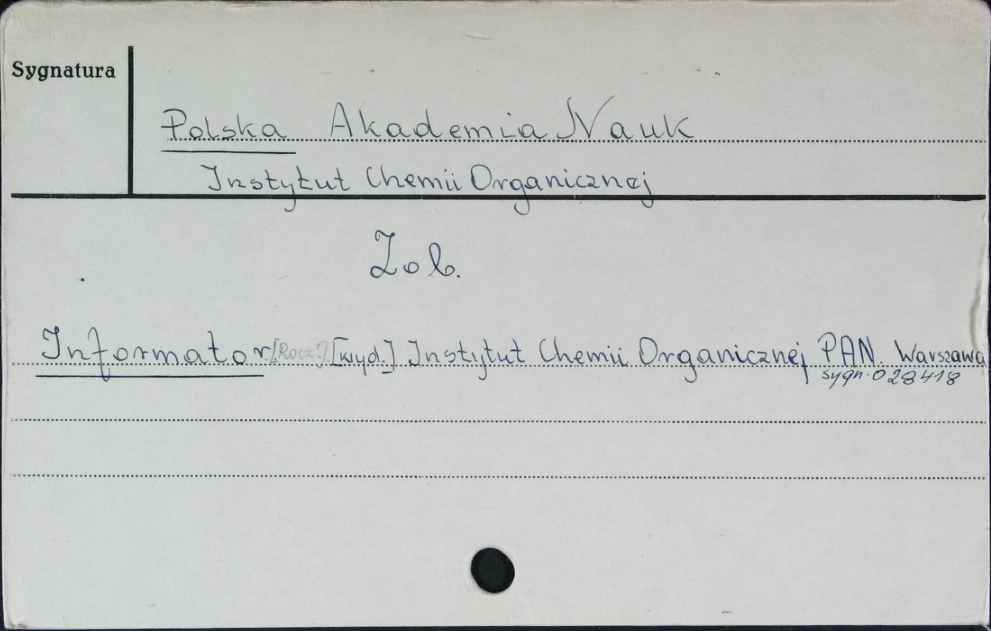 Sygnatura
Polska Akademia Nauk
Instytut Chemii Organicznej
Zob.
Informator [Rocz.] [wyd.] Instytut Chemii Organicznej PAN. Warszawa
sygn. 028418